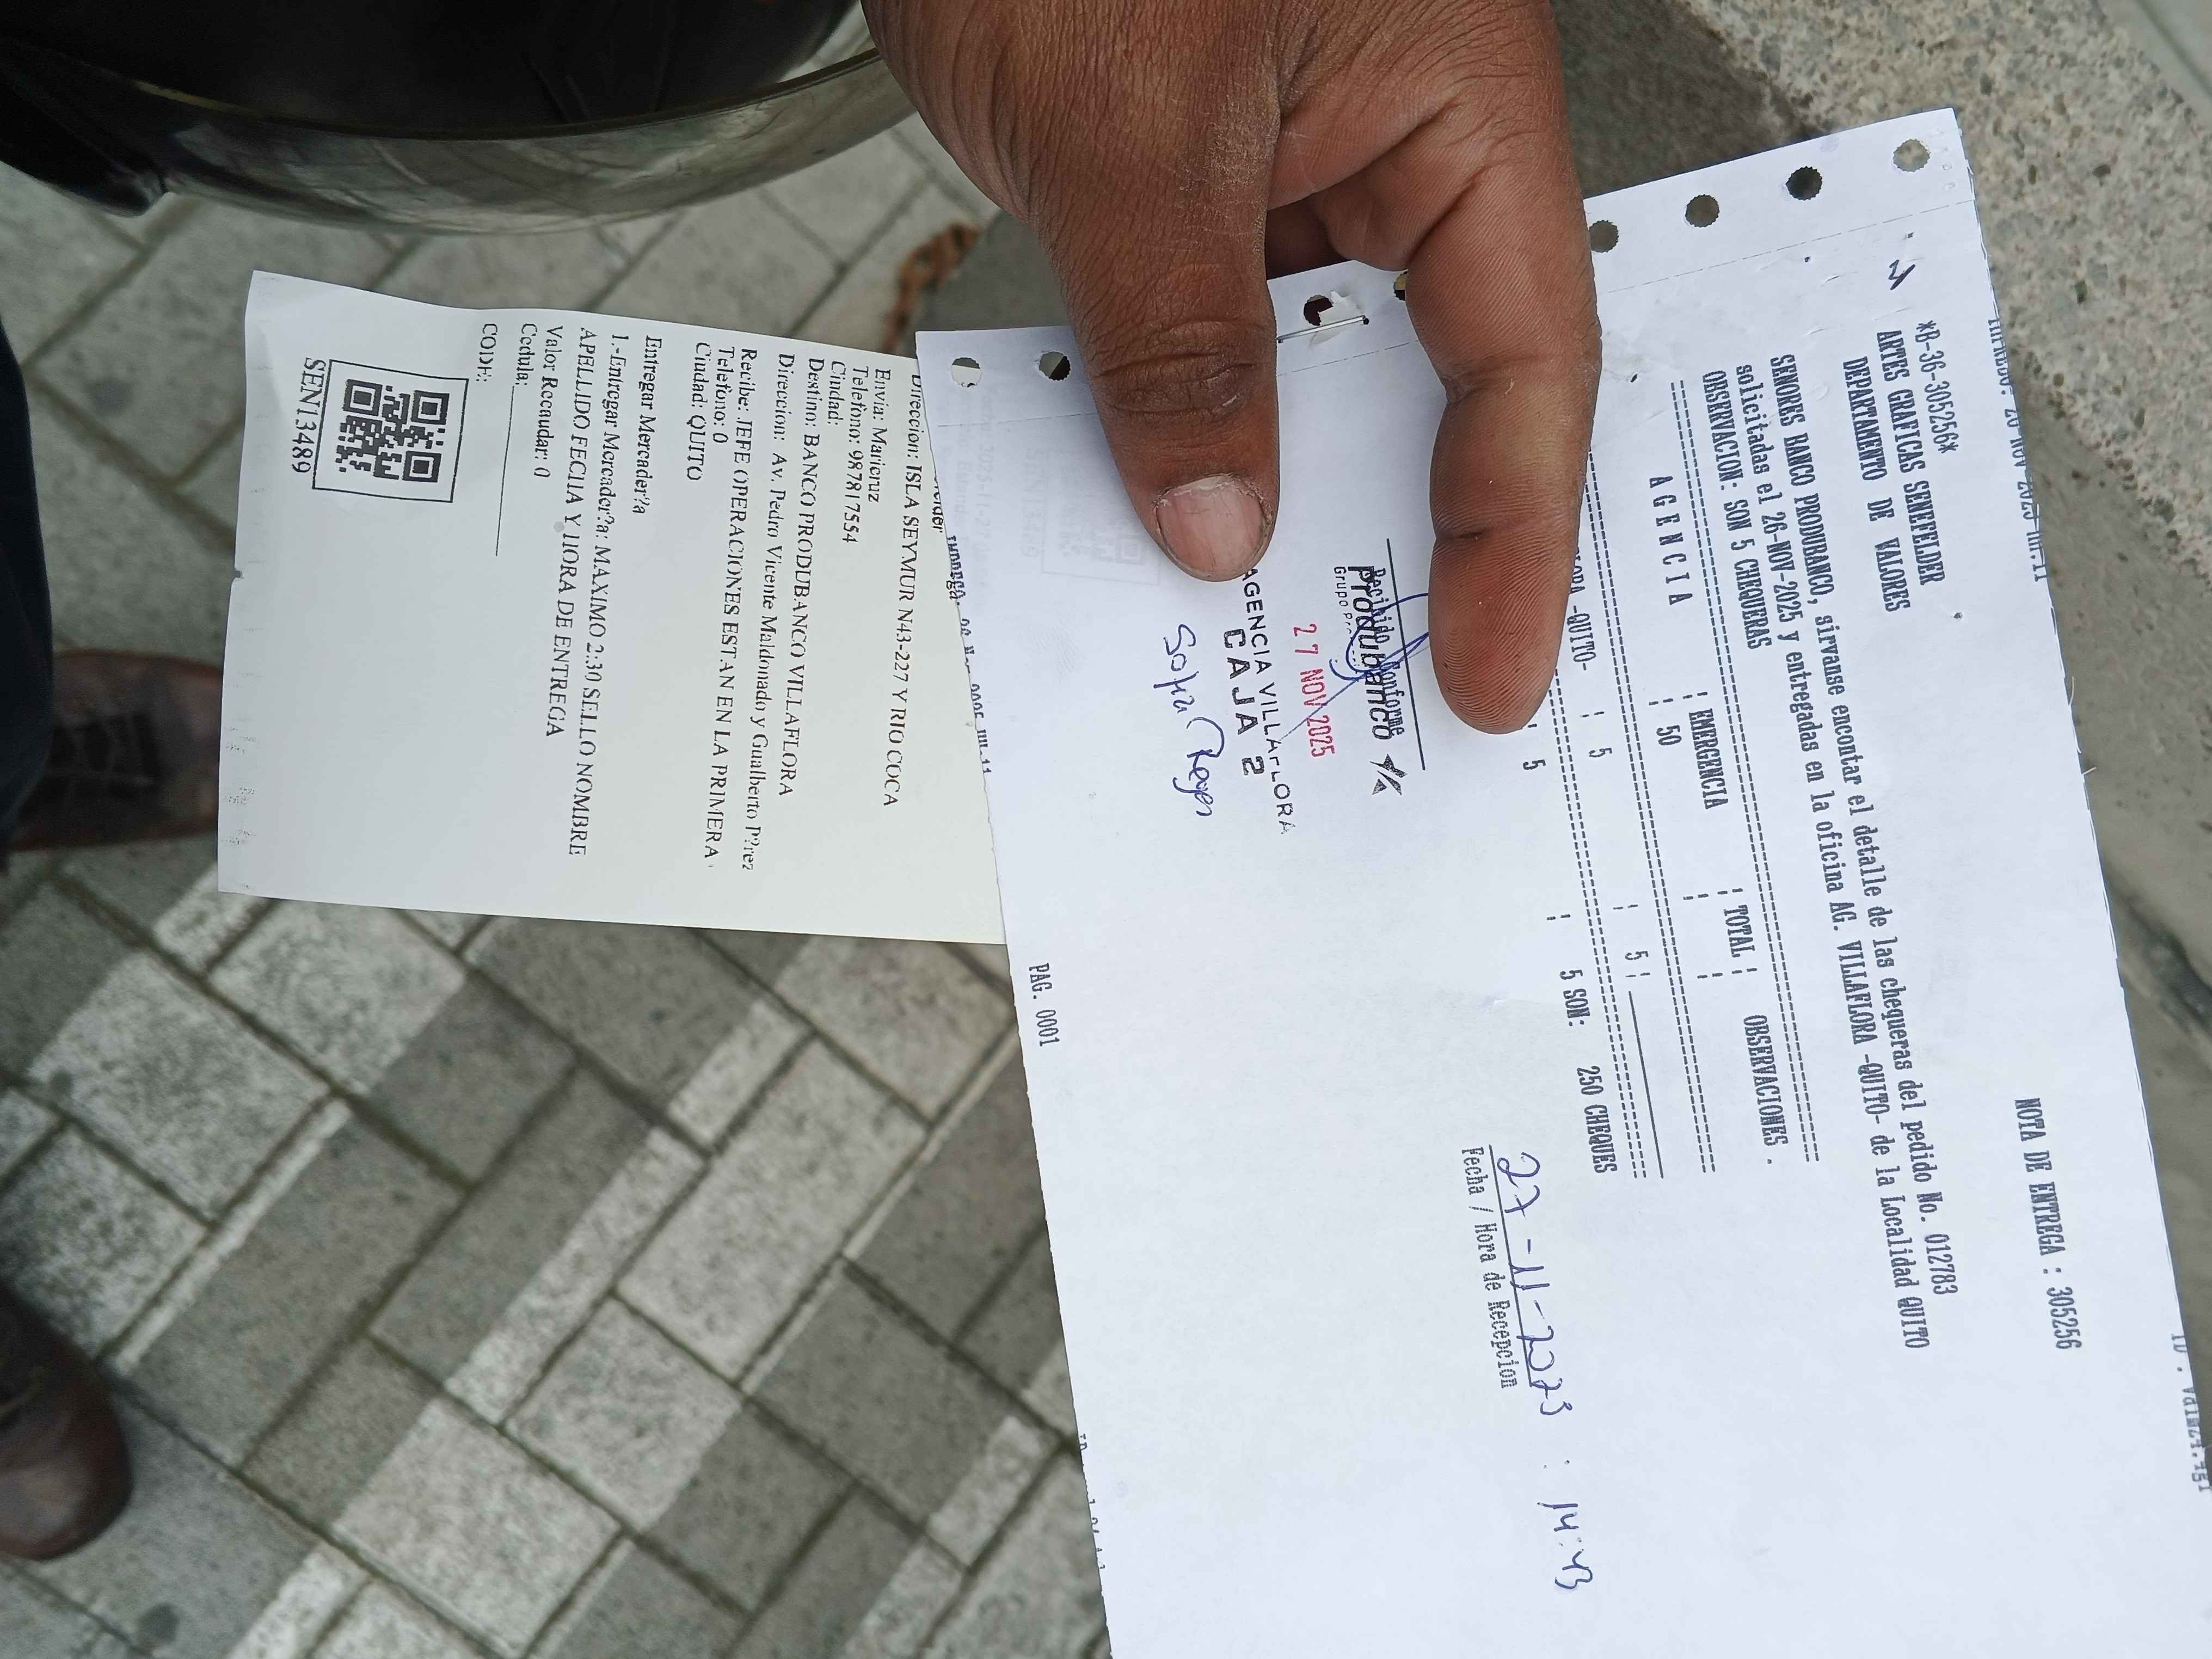 NOTA DE ENTREGA : 305256
*B-36-305256*
ARTES GRAFICAS SENEFELDER
DEPARTAMENTO DE VALORES
SENORES BANCO PRODUBANCO, sirvanse encontar el detalle de las chequeras del pedido No. 012783
solicitadas el 26-NOV-2025 y entregadas en la oficina AG. VILLAFLORA -QUITO- de la Localidad QUITO
OBSERVACION: SON 5 CHEQUERAS
A G E N C I A | EMERGENCIA | TOTAL | OBSERVACIONES .
| 50 | |
-QUITO- | 5 | 5 |
5 | 5 SON: 250 CHEQUES
27-11-2025 : 14:43
Fecha / Hora de Recepcion
Recibido Conforme
Produbanco
Grupo
27 NOV 2025
AGENCIA VILLAFLORA
CAJA 2
Sofia Reyes
PAG. 0001
Direccion: ISLA SEYMUR N43-227 Y RIO COCA
Envia: Maricruz
Telefono: 987817554
Ciudad:
Destino: BANCO PRODUBANCO VILLAFLORA
Direccion: Av. Pedro Vicente Maldonado y Gualberto P?rez
Recibe: JEFE OPERACIONES ESTAN EN LA PRIMERA
Telefono: 0
Ciudad: QUITO
Entregar Mercader?a
1.-Entregar Mercader?a: MAXIMO 2:30 SELLO NOMBRE
APELLIDO FECHA Y HORA DE ENTREGA
Valor Recaudar: 0
Cedula:
CODE:
SEN13489